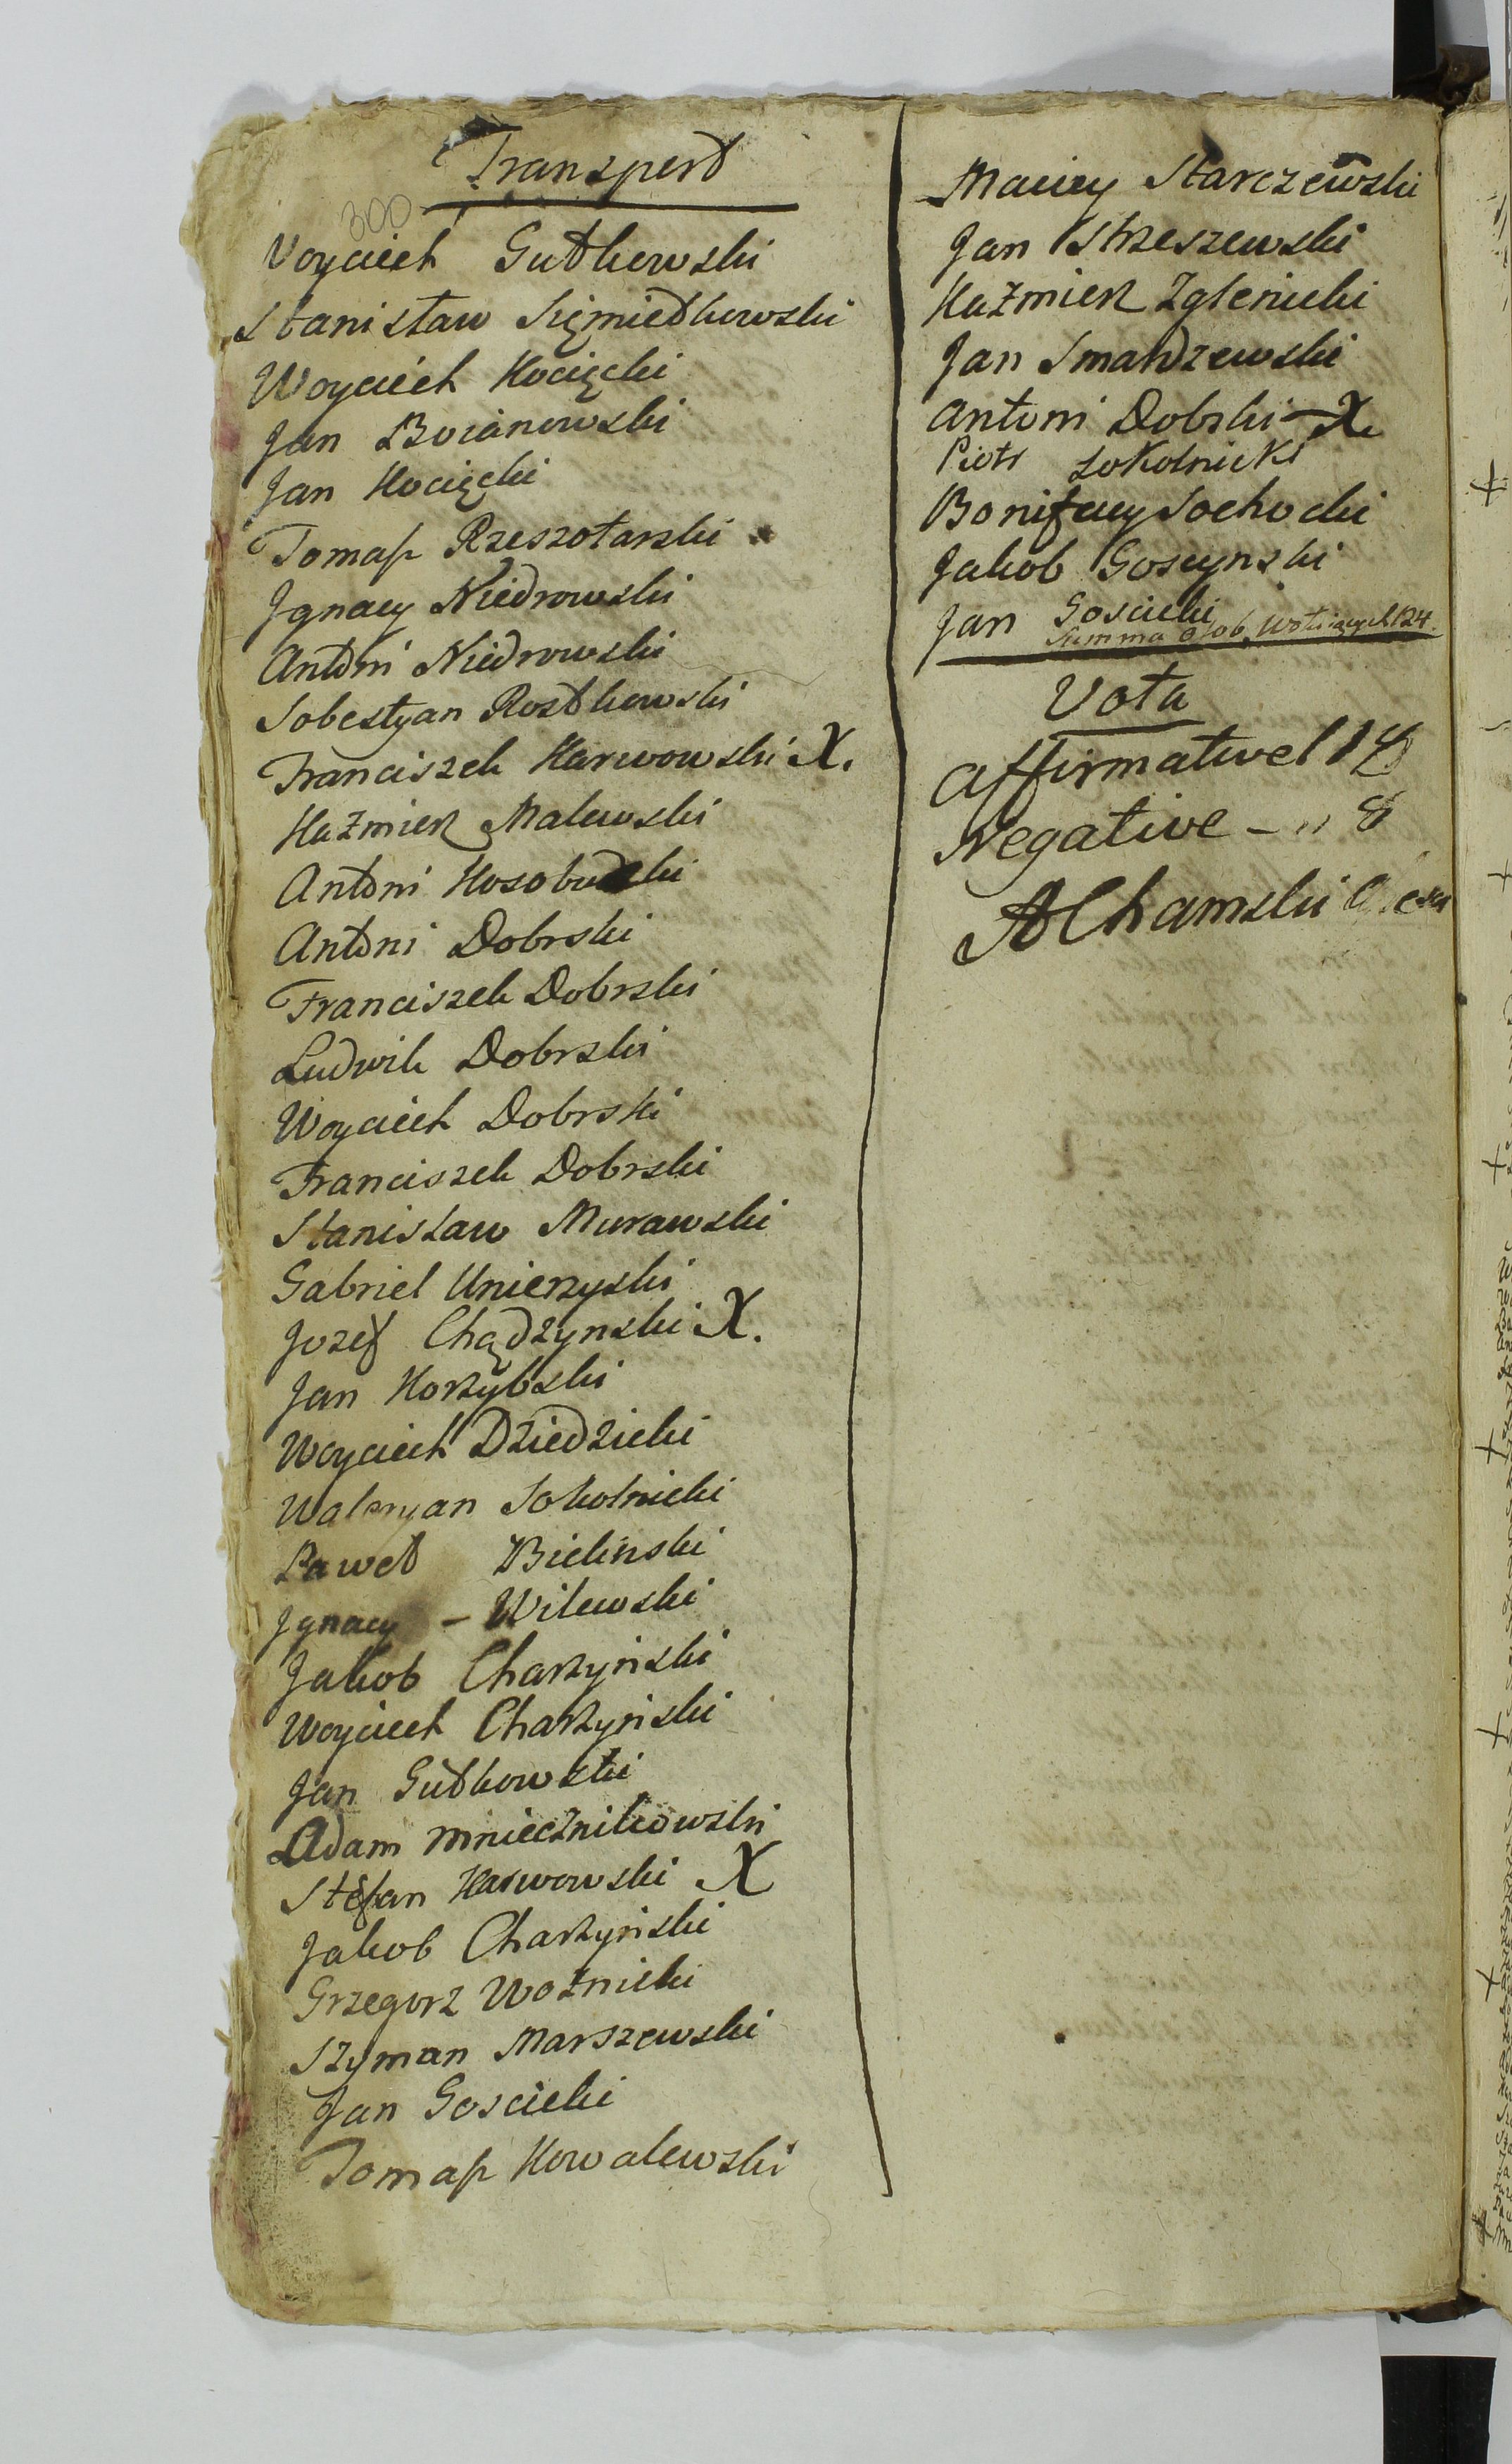 Transport
300
Woyciech Gutkowski
Stanisław Siemiedkowski
Woyciech Kocięcki
Jan Boianowski
Jan Kocięcki
Tomaß Rzeszotarski
Jgnacy Niedrowski
Antoni Niedrowski
Sobestyan Rostkowski
Franciszek Karwowski X.
Kaźmierz Malewski
Antoni Kosobudzki
Antoni Dobrski
Franciszek Dobrski
Ludwik Dobrski
Woyciech Dobrski
Franciszek Dobrski
Stanisław Murawski
Gabriel Unierzyski
Jozef Chądzynski X.
Jan Korzybski
Woyciech Dziedzicki
Waleryan Sokolnicki
Paweł Bielinski
Jgnacy - Wilewski
Jakob Charzyński
Woyciech Charzyński
Jan Gutkowski
Adam Mniecznikowski
Stefan Karwowski X
Jakob Charzyński
Grzegorz Woźnicki
Szyman Marszewski
Jan Gościcki
Tomaß Kowalewski
Maciey Starczewski
Jan Strzeszewski
Kaźmierz Zglenicki
Jan Smardzewski
Antoni Dobrski - X
Piotr Sokolnicki
Bonifacy Sochocki
Jakob Goscynski
Jan Gościcki
Summa osob wotuiących 124.
Vota
Affirmative
Negative - " 8
A Chamski